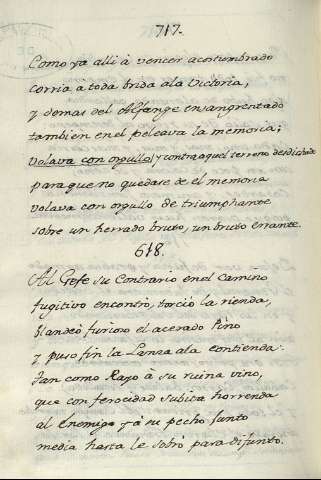 717.
Como ya alli à vencer acostumbrado
corria a toda brida ala Victoria,
y demas del Alfange ensangrentado
tambien en el peleava la memoria;
volava con orgullo y contra aquel terreno desdichado
para que no quedase de el memoria
volava con orgullo de triumphante
sobre un herrado bruto, un bruto errante.
618.
Al Gefe su Contrario en el Camino
fugitivo encontrò, torciò la rienda,
blandeò furioso el acerado Pino
y puso fin la Lanza ala contienda.
Tan como Rayo à su ruina vino,
que con ferocidad subita horrenda
al Enemigo yà su pecho junto
media hasta le sobrò para difunto.